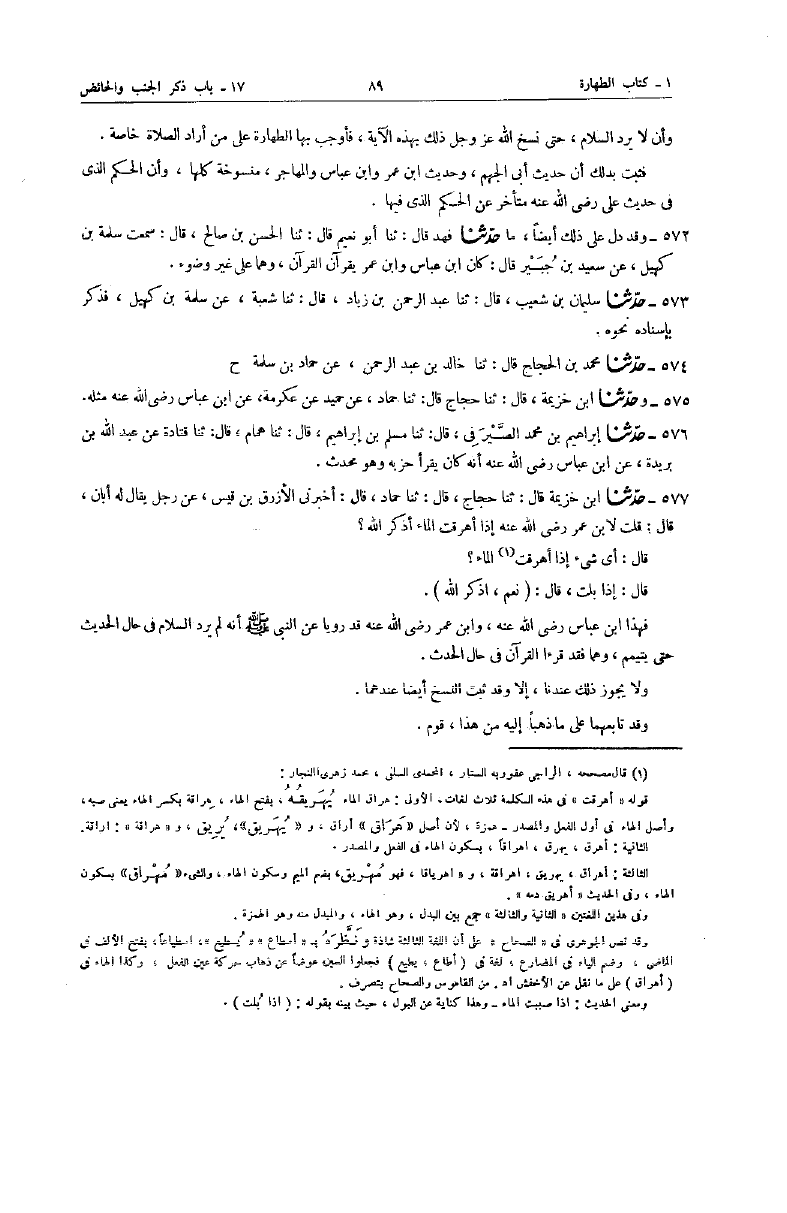 ١ ـ كتاب الطهارة ٨٩ ١٧ ـ باب ذكر الجنب والحائض
وأن لا يرد السلام ، حتى نسخ الله عز وجل ذلك بهذه الآية ، فأوجب بها الطهارة على من أراد الصلاة خاصة .
فثبت بذلك أن حديث أبى الجهم ، وحديث ابن عمر وابن عباس والمهاجر ، منسوخة كلها ، وأن الحكم الذى
فى حديث على رضى الله عنه متأخر عن الحكم الذى فيها .
٥٧٢ ـ وقد دل على ذلك أيضاً ، ما حدّثنا فهد قال : ثنا أبو نعيم قال : ثنا الحسن بن صالح ، قال : سمعت سلمة بن
كهيل ، عن سعيد بن جُبَيْر قال : كان ابن عباس وابن عمر يقرآن القرآن ، وهما على غير وضوء .
٥٧٣ ـ حدّثنا سليمان بن شعيب ، قال : ثنا عبد الرحمن بن زياد ، قال : ثنا شعبة ، عن سلمة بن كهيل ، فذكر
بإسناده نحوه .
٥٧٤ ـ حدّثنا محمد بن الحجاج قال : ثنا خالد بن عبد الرحمن ، عن حماد بن سلمة ح
٥٧٥ ـ وحدّثنا ابن خزيمة ، قال : ثنا حجاج قال : ثنا حماد ، عن حميد عن عكرمة، عن ابن عباس رضى الله عنه مثله.
٥٧٦ ـ حدّثنا إبراهيم بن محمد الصَّيْرَفى ، قال: ثنا مسلم بن إبراهيم ، قال : ثنا همام ، قال: ثنا قتادة عن عبد الله بن
بريدة ، عن ابن عباس رضى الله عنه أنه كان يقرأ حزبه وهو محدث .
٥٧٧ ـ حدّثنا ابن خزيمة قال : ثنا حجاج ، قال : ثنا حماد ، قال : أخبرنى الأزرق بن قيس ، عن رجل يقال له أبان ،
قال : قلت لابن عمر رضى الله عنه إذا أهرقت الماء أذكر الله ؟
قال : أى شىء إذا أهرقت(١) الماء ؟
قال : إذا بلت ، قال : ( نعم ، اذكر الله ) .
فهذا ابن عباس رضى الله عنه ، وابن عمر رضى الله عنه قد رويا عن النبى ﷺ أنه لم يرد السلام فى حال الحديث
حتى يتيمم ، وهما فقد قرءا القرآن فى حال الحدث .
ولا يجوز ذلك عندنا ، إلا وقد ثبت النسخ أيضا عندهما .
وقد تابعهما على ما ذهبا إليه من هذا ، قوم .
(١) قال مصححه ، الراجى عفو ربه الستار ، المحمدى السلنى ، محمد زهرى النجار :
قوله « أهرقت » فى هذه الكلمة ثلاث لغات. الأولى : هراق الماء يُهَرِيقُهُ ، بفتح الهاء ، هراقة بكسر الهاء يعنى صبه،
وأصل الهاء فى أول الفعل والمصدر ـ همزة ، لأن أصل « هَرَاق » أراق ، و « يُهَريق »، يُريق ، و « هراقة » : اراقة.
الثانية : أهرق ، يهرق ، اهراقاً ، بسكون الهاء فى الفعل والمصدر .
الثالثة : أهراق ، يهريق ، اهراقة ، و « اهرياقا ، فهو مُهْريق، بضم الميم وسكون الهاء ، والشىء « مُهْراق» بسكون
الهاء ، وفى الحديث « أهريق دمه » .
وفى هذين اللغتين « الثانية والثالثة » جمع بين البدل ، وهو الهاء ، والمبدل منه وهو الهمزة .
وقد نص الجوهرى فى « الصحاح » على أن اللغة الثالثة شاذة ونَظَّرَهُ بـ « أسطاع » « يُسطيع »، اسطياعاً، بفتح الألف فى
الماضى ، وضم الياء فى المضارع ، لغة فى ( أطاع ، يطيع ) فجعلوا السين عوضاً عن ذهاب حركة عين الفعل ، وكذا الهاء فى
( أهراق ) على ما نقل عن الأخفش اه . من القاموس والصحاح بتصرف .
ومعنى الحديث : اذا صببت الماء ـ وهذا كناية عن البول ، حيث بينه بقوله : ( اذا بُلت ) .